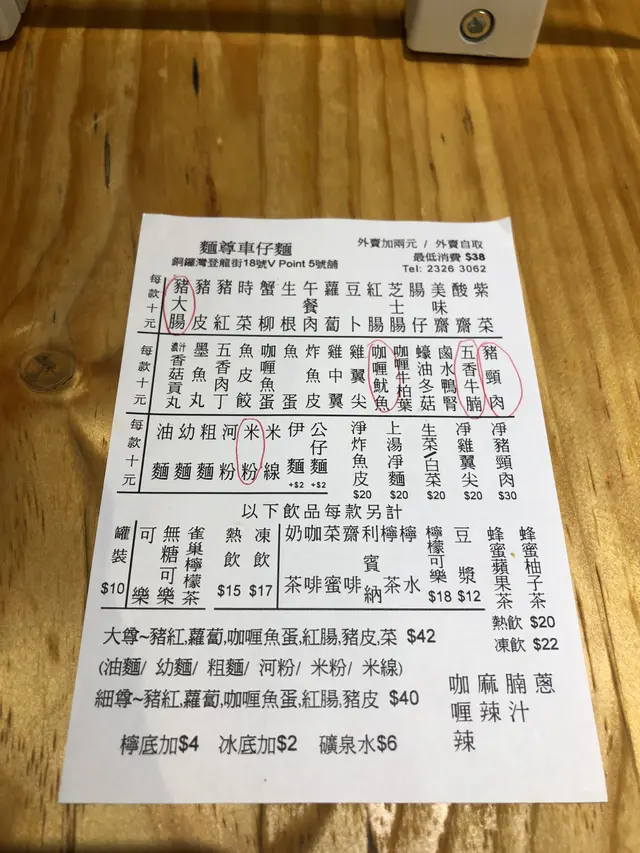 麵尊車仔麵
銅鑼灣登龍街18號V Point 5號舖
外賣加兩元 / 外賣自取
最低消費 $38
Tel: 2326 3062
每款十元
豬大腸 豬皮 豬紅 時菜 蟹柳 生根 午餐肉 蘿蔔 豆卜 紅腸 芝士腸 腸仔 美味齋 酸齋 紫菜
每款十元
濃汁香菇貢丸 墨魚丸 五香肉丁 魚皮餃 咖喱魚蛋 魚蛋 炸魚皮 雞中翼 雞翼尖 咖喱魷魚 咖喱牛柏葉 蠔油冬菇 鹵水鴨腎 五香牛腩 豬頸肉
每款十元
油麵 幼麵 粗麵 河粉 米粉 米線 伊麵+$2 公仔麵+$2 淨炸魚皮$20 上湯淨麵$20 生菜/白菜$20 淨雞翼尖$20 淨豬頸肉$30
以下飲品每款另計
罐裝$10 可樂 無糖可樂 雀巢檸檬茶 熱飲$15 凍飲$17 奶茶 咖啡 菜蜜 齋啡 利賓納 檸茶 檸水 檸檬可樂$18 豆漿$12 蜂蜜蘋果茶 蜂蜜柚子茶
熱飲 $20
凍飲 $22
大尊~豬紅,蘿蔔,咖喱魚蛋,紅腸,豬皮,菜 $42
(油麵/ 幼麵/ 粗麵/ 河粉/ 米粉/ 米線)
細尊~豬紅,蘿蔔,咖喱魚蛋,紅腸,豬皮 $40
檸底加$4 冰底加$2 礦泉水$6
咖喱辣 麻辣 腩汁 蔥